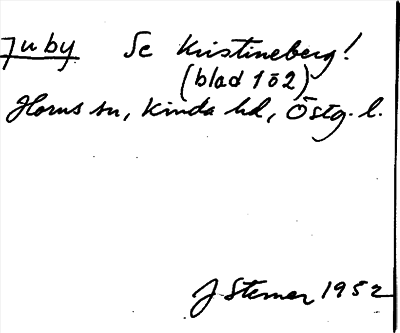 Juby Se Kristineberg!
(blad 1ō2)
Horns sn, Kinda hd, Östg. l.
J Sterner 1952